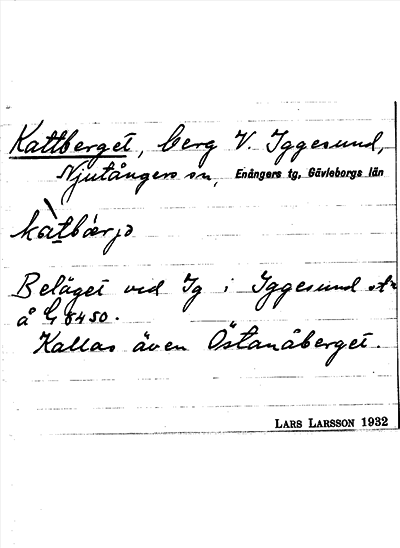 Kattberget, berg V. Iggesund,
Njutångers sn, Enångers tg, Gävleborgs län
Beläget vid Ig i Iggesund st
å G 8450.
Kallas även Östanåberget.
LARS LARSSON 1932